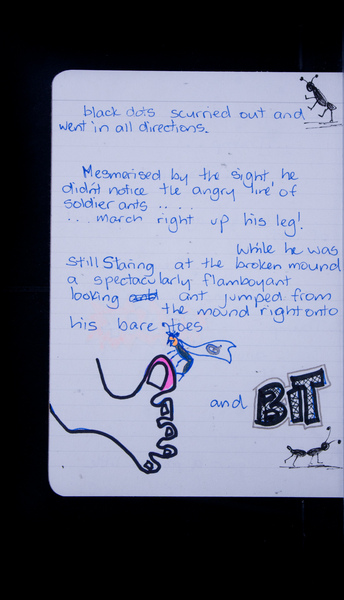 black dots scurried out and
went in all directions.
Mesmerised by the sight, he
didn't notice the angry 'line' of
soldier ants ....
... march right up his leg!
While he was
still staring at the broken mound
a spectacularly flamboyant
looking ant jumped from
the mound right onto
his bare toes
and BIT